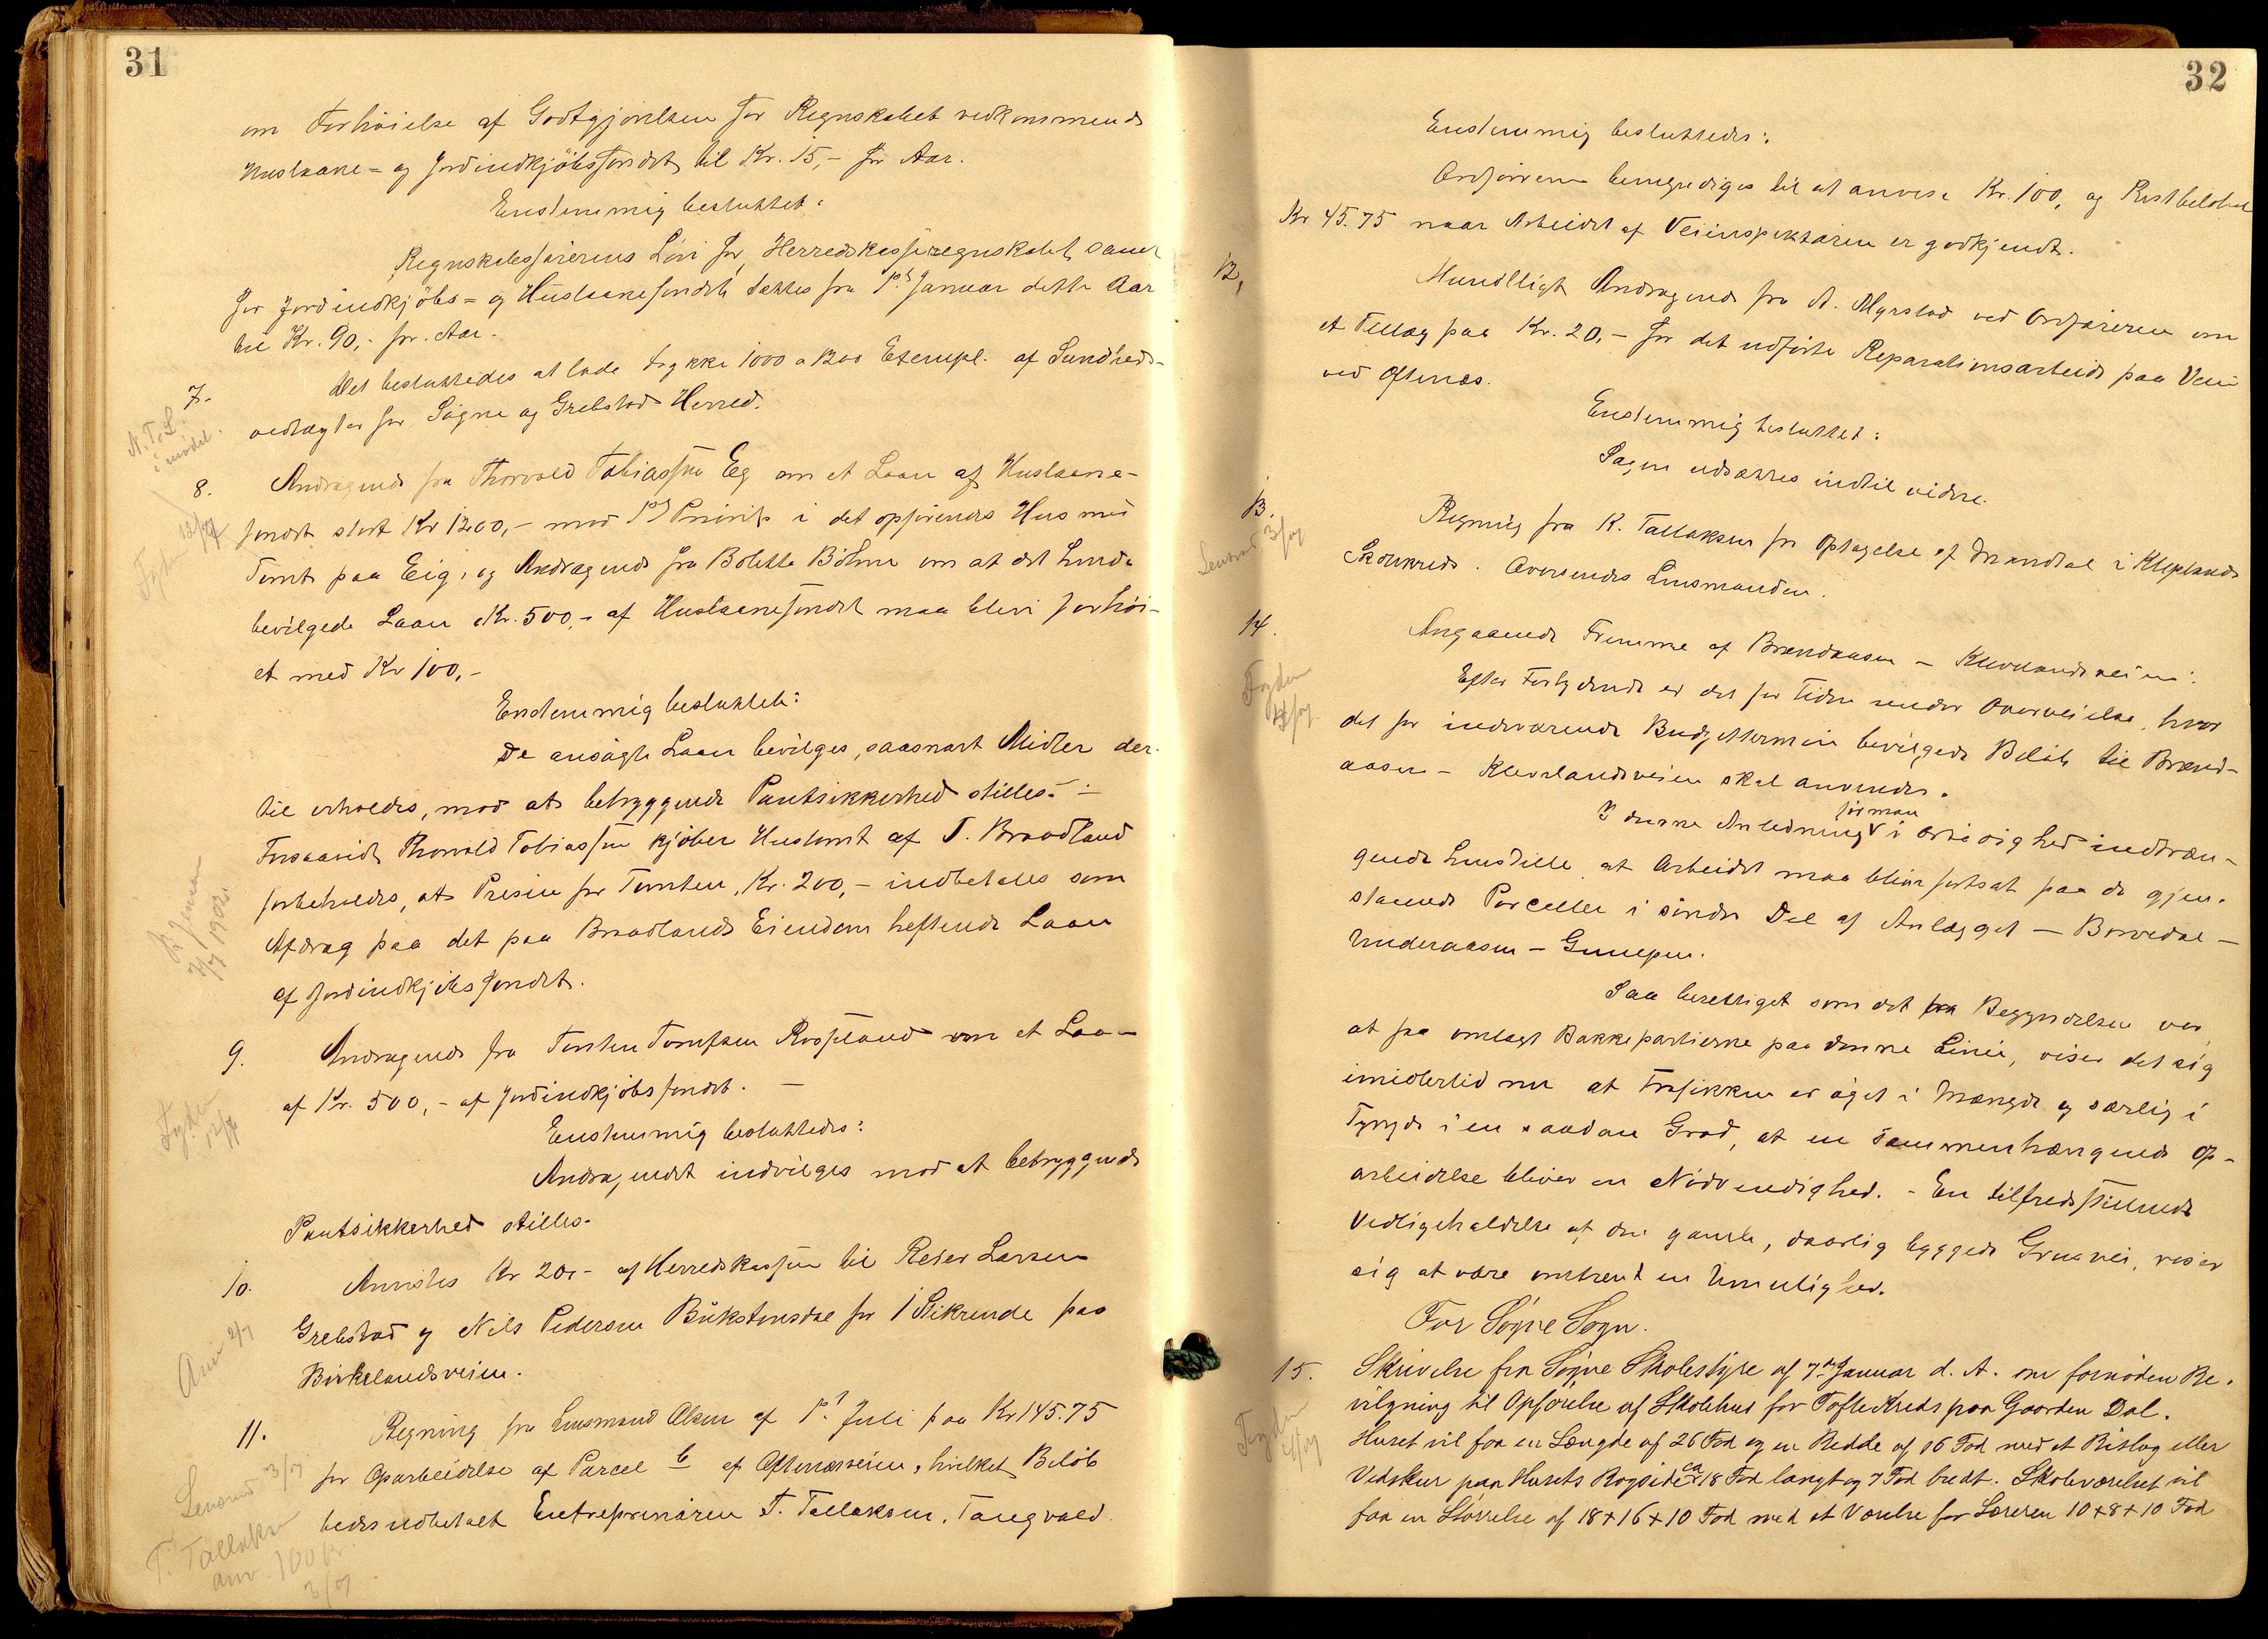 31
om Forhöielse af Godtgjörelsen for Regnskabet vedkommende
Huslaane- og Jordindkjöbsfondet til Kr. 15,- pr Aar.
Enstemmig besluttet:
Regnskabsförerens Lön for Herredskasseregnskabet samt
for Jordindkjöbs- og Huslaanefondet sættes fra 1ste Januar dette Aar
til Kr. 90,- pr. Aar.
7.
Det besluttedes at lade trykke 1000 a 1200 Exempl. af Sundheds-
vedtægter for Sögne og Greipstad Herred.
N. T. L.
i mödet.
8.
Andragende fra Thorvald Tobiassen Eeg om et Laan af Huslaane-
fondet stort Kr 1200,- mod 1ste Prioritet i det opförendes Hus med
Tomt paa Eig, og Andragende fra Bolette Böhme om at det hende
bevilgede Laan Kr. 500,- af Huslaanefondet maa blive forhöi-
et med Kr 100,-
Enstemmig besluttet:
De ansögte Laan bevilges, saasnart Midler der-
til erholdes, mod at betryggende Pantsikkerhed stilles.-
Forsaavidt Thorvald Tobiassen kjöber Hustomt af T. Braadland
forbeholdes, at Prisen for Tomten, Kr. 200,- indbetales som
Afdrag paa det paa Braadlands Eiendom heftende Laan
af Jordindkjöbsfondet.
9.
Andragende fra Torsten Tomassen Rosseland om et Laan
af Kr. 500,- af Jordindkjöbsfondet. -
Enstemmig besluttedes:
Andragendet indvilges mod at betryggende
Pantsikkerhed stilles.
10.
Anvistes Kr 20,- af Herredskassen til Reier Larsen
Greibstad og Nils Pedersen Bükstensdal for 1 Stikrende paa
Birkelandsveien.
11.
Regning fra Lensmand Olsen af 1ste Juli paa Kr 145.75
for Oparbeidelse af Parcel b af Oftenæsveien, hvilket Belöb
bedes udbetalt Entreprenören T. Tallaksen, Tangvald.
Lensmd 3/7
T. Tallaksen
anv. 100 kr.
3/07
32
Enstemmig besluttedes:
Ordföreren bemyndiges til at anvise Kr. 100, og Restbelöbet
Kr 45.75 naar Arbeidet af Veiinspektören er godkjendt.
12,
Mundtligt Andragende fra A. Myrstad ved Ordföreren om
et Tillæg paa Kr. 20,- for det udförte Reparationsarbeide paa Veien
ved Oftenæs.
Enstemmig besluttet:
Sagen udsættes indtil videre.
13.
Regning fra K. Tallaksen for Optagelse af Mandtal i Kleplands
Skolekreds. Oversendes Lensmanden.
Lensmd 3/07
14.
Angaaende Fremme af Brændaasen - Klevelandsveien:
Efter Forlydende er det for Tiden under Overveielse, hvor
det for indeværende Budgettermin bevilgede Belöb til Brænd-
aasen - Klevelandsveien skal anvendes.
I denne Anledning tör man i Ærbödighed indtræn-
gende henstille, at Arbeidet maa blive fortsat paa de gjen-
staaende Parceller i söndre Del af Anlægget - Borvedal -
Underaasen - Gumpen.
Saa berettiget som det fra Begyndelsen var
at faa omlagt Bakkepartierne paa denne Linie, viser det sig
imidlertid nu at Trafikken er öget i Mængde og særlig i
Tyngde i en saadan Grad, at en sammenhængende Op-
arbeidelse bliver en Nödvendighed. - En tilfredsstillende
Vedligeholdelse af den gamle, daarlig byggede Grusvei, viser
sig at være omtrent en Umulighed.
For Sögne Sogn.
15.
Skrivelse fra Sögne Skolestyre af 7de Januar d. A. om fornöden Be-
vilgning til Opförelse af Skolehus for Tofte Kreds paa Gaarden Dal.
Huset vil faa en Længde af 26 Fod og en Bredde af 16 Fod med et Bislag eller
Vedskur paa Husets Bagside ca 18 Fod langt og 7 Fod bredt. Skoleværelset vil
faa en Störrelse af 18 + 16 + 10 Fod med et Værelse for Læreren 10 + 8 + 10 Fod